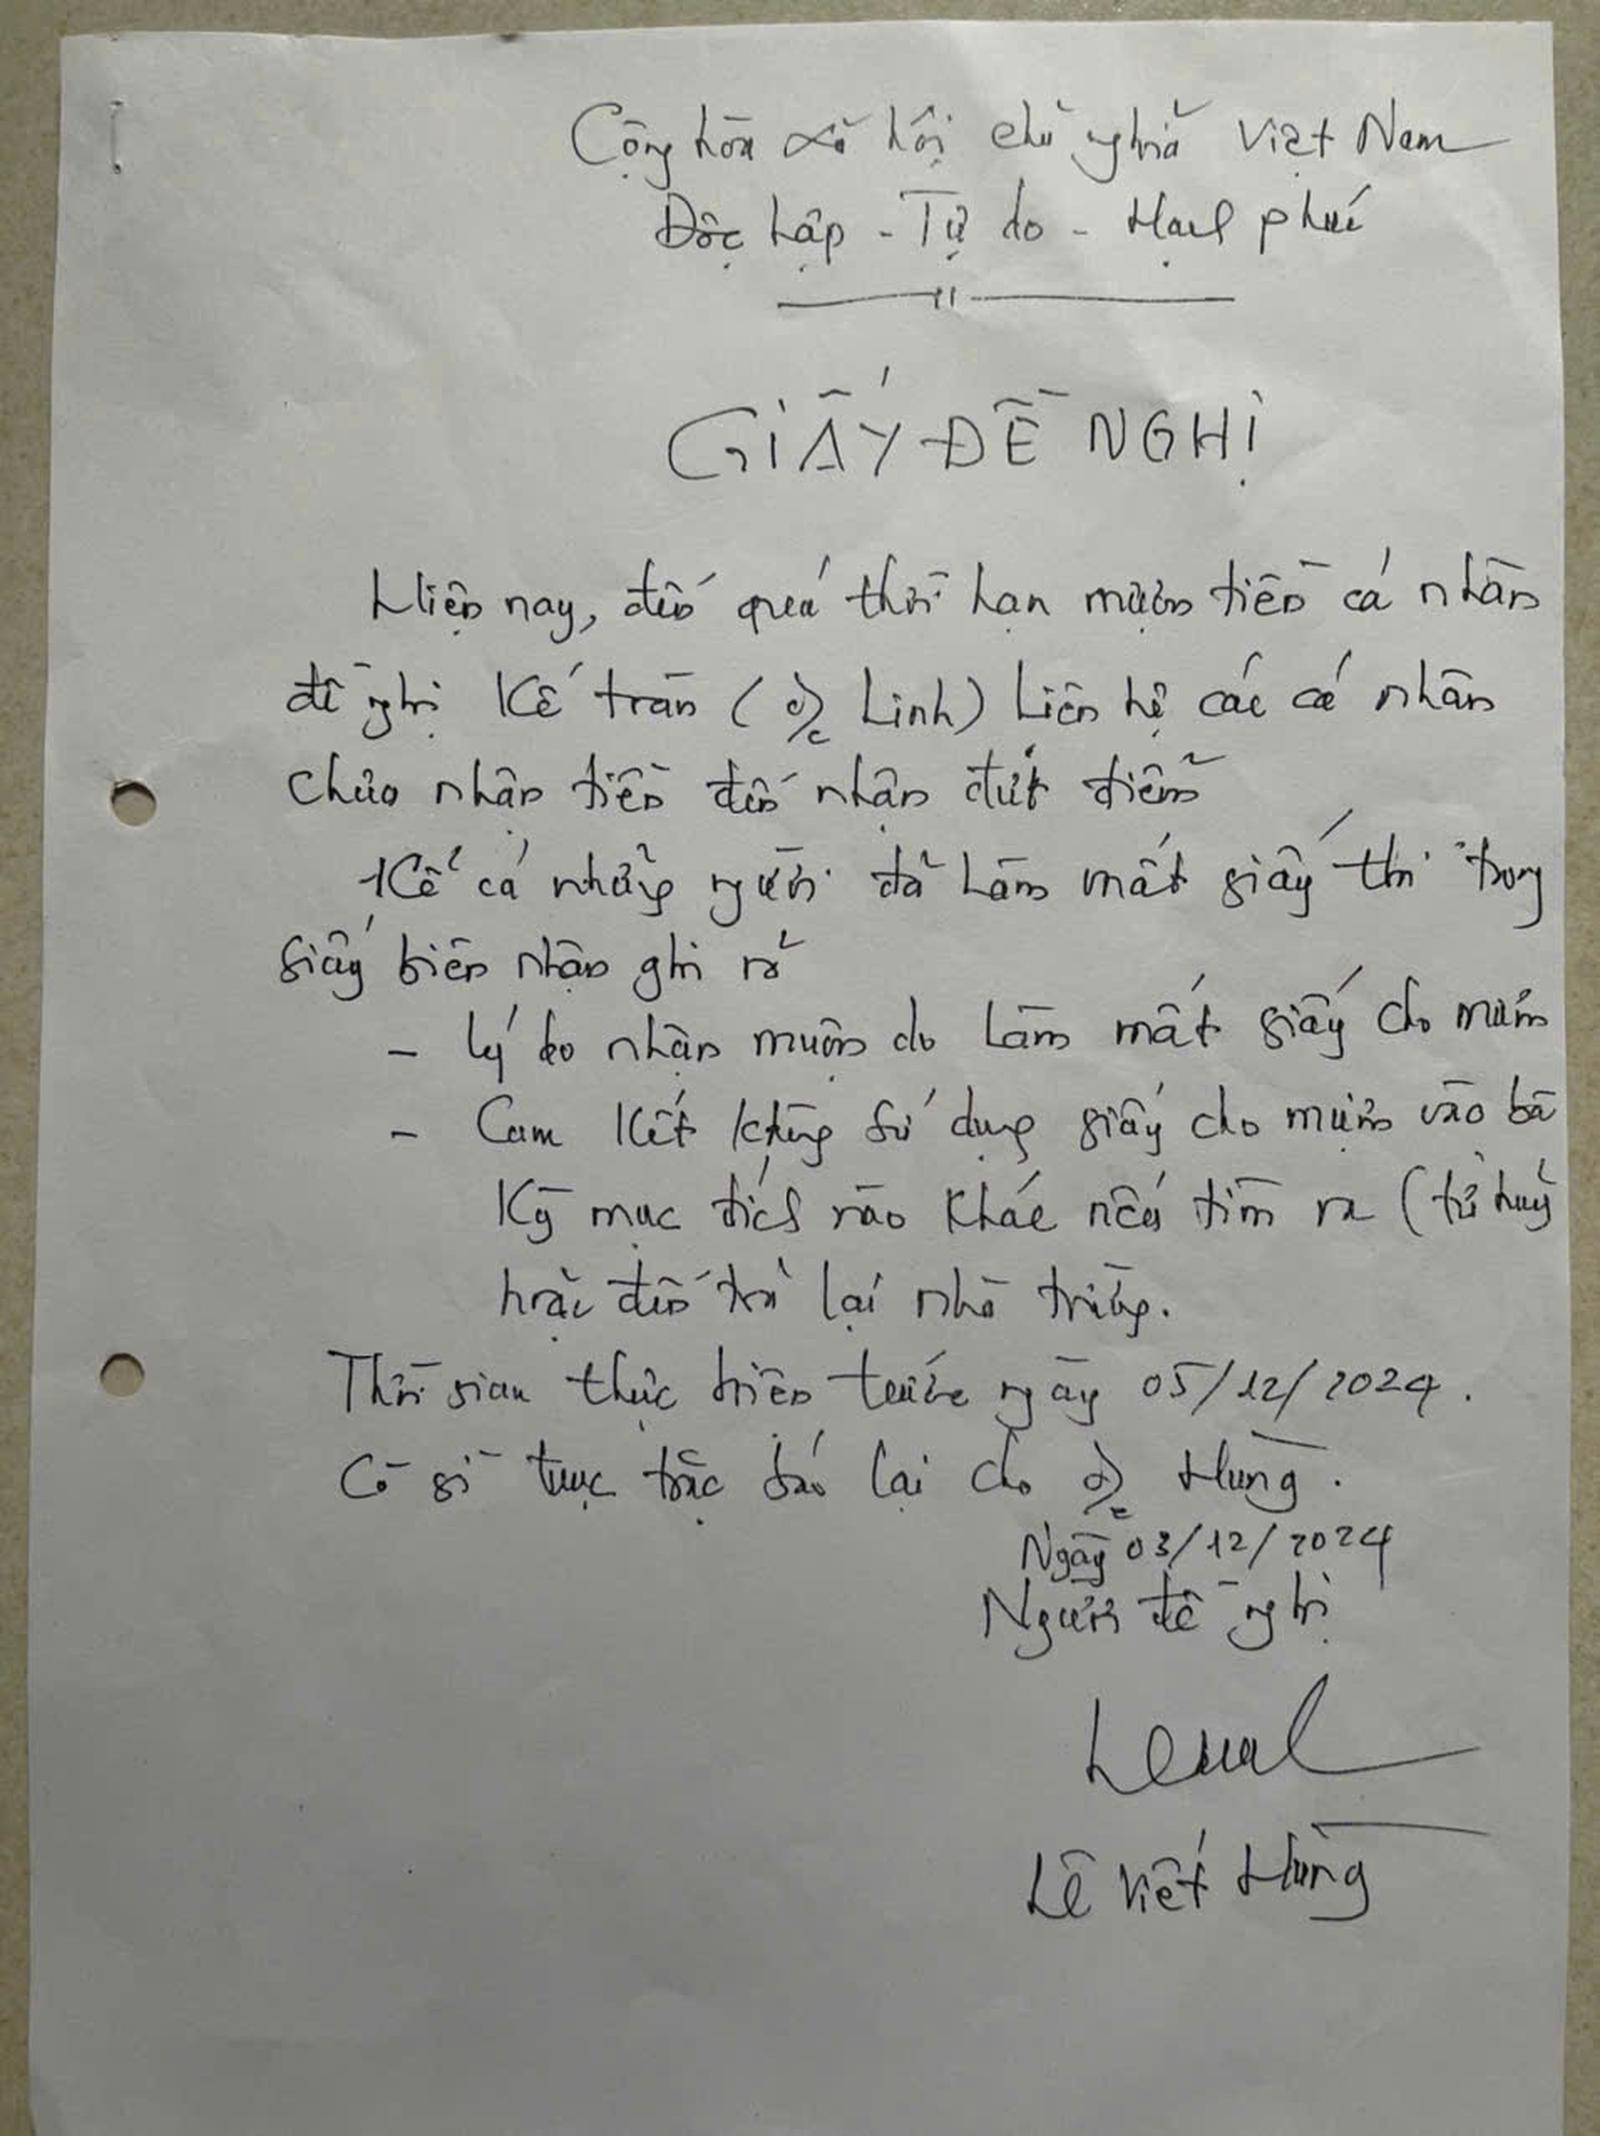 Cộng hòa xã hội chủ nghĩa Việt Nam
Độc lập - Tự do - Hạnh phúc
GIẤY ĐỀ NGHỊ
Hiện nay, đến quá thời hạn mượn tiền cá nhân
đề nghị Kế toán (đ/c Linh) liên hệ các cá nhân
chưa nhận tiền đến nhận dứt điểm
Kể cả những người đã làm mất giấy thì trong
giấy biên nhận ghi rõ
- Lý do nhận muộn do làm mất giấy cho mượn
- Cam kết không sử dụng giấy cho mượn vào bất
kỳ mục đích nào khác nếu tìm ra (tự huỷ
hoặc đến trả lại nhà trường.
Thời gian thực hiện trước ngày 05/12/2024.
Có gì trục trặc báo lại cho đ/c Hùng.
Ngày 03/12/2024
Người đề nghị
Lê Viết Hùng